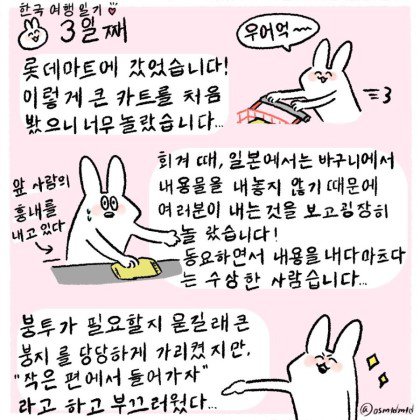 한국 여행 일기
3일째
롯데마트에 갔었습니다!
이렇게 큰 카트를 처음
봤으니 너무 놀랐습니다...
우어억~~
앞 사람의
흉내를
내고 있다
회계 때, 일본에서는 바구니에서
내용물을 내놓지 않기 때문에
여러분이 내는 것을 보고 굉장히
놀랐습니다!
동요하면서 내용을 내다 마초다
는 수상한 사람습니다...
봉투가 필요할지 묻길래 큰
봉지를 당당하게 가리켰지만,
"작은 편에서 들어가자"
라고 하고 부끄러웠다...
@osmldmld